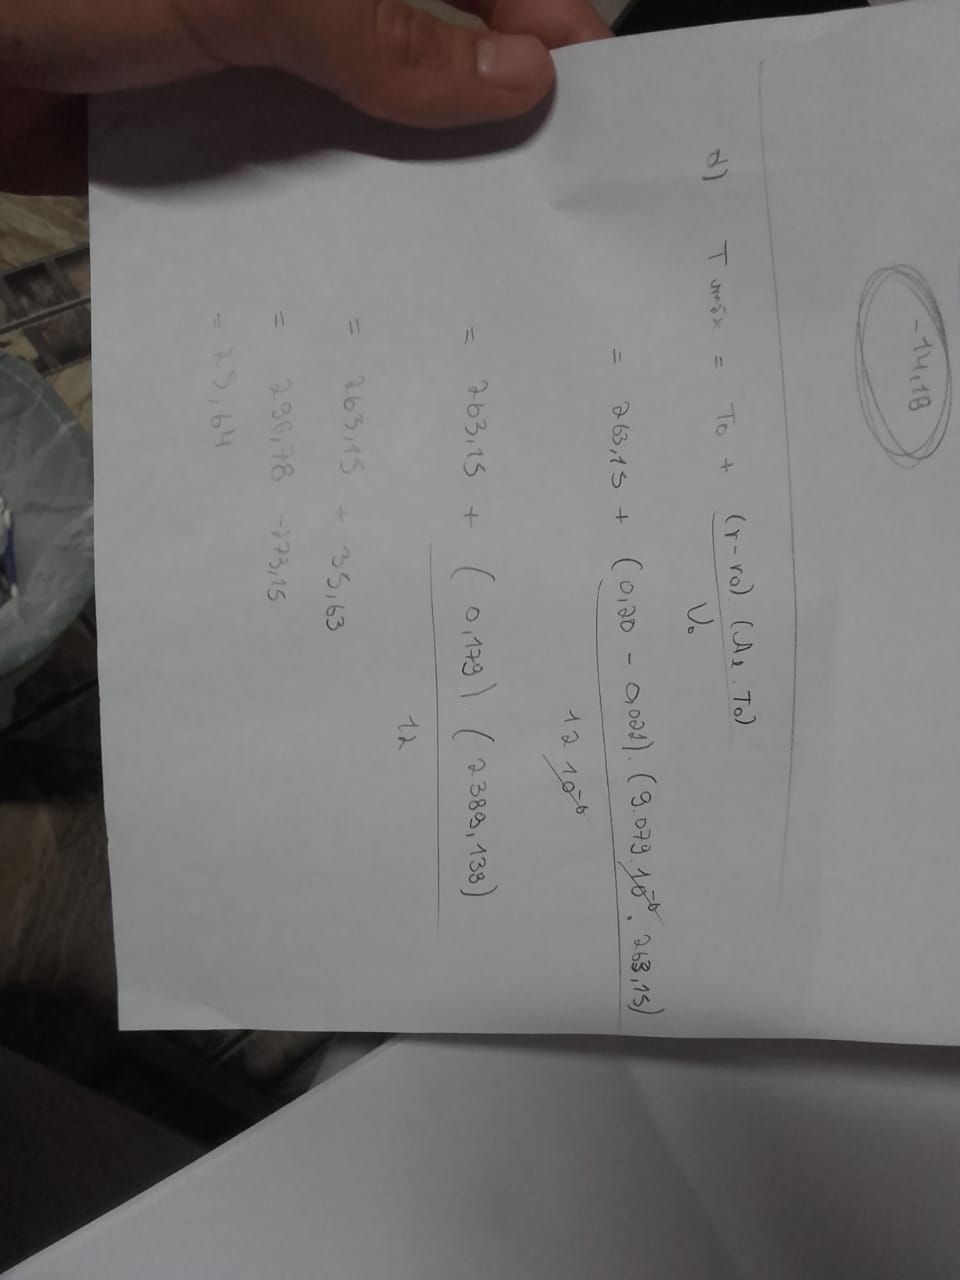 -14,18
d) T máx = T0 + (r-r0) (Al . T0)
V0
= 263,15 + (0,20 - 0,021) . (9.079.10^-6 . 263,15)
12 10^-6
= 263,15 + (0,179) . (2389,138)
12
= 263,15 + 35,63
= 298,78 -273,15
= 25,64